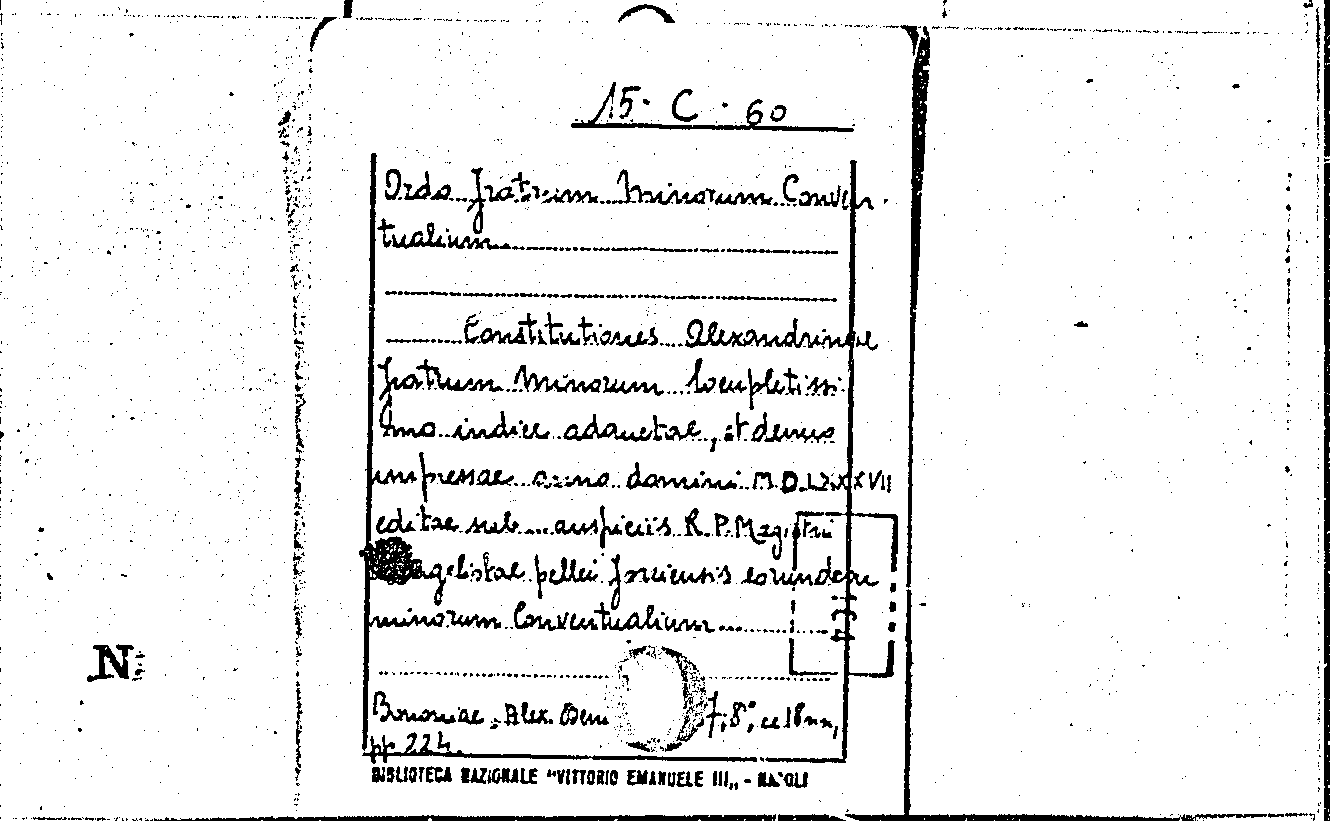 15. C. 60
Ordo Fratrum Minorum Conven-
tualium
Constitutiones Alexandrinae
fratrum Minorum locupletissi
mo indice adauctae, et denuo
impressae anno domini M.D.LXXXVII
editae sub auspiciis R. P. Magistri
agelistae pellei forciensis eorundem
minorum Conventualium
N:
Bononiae, Alex. Bem 7, 8°, cc 18 nn,
pp 224.
BIBLIOTECA NAZIONALE "VITTORIO EMANUELE III" - NAPOLI